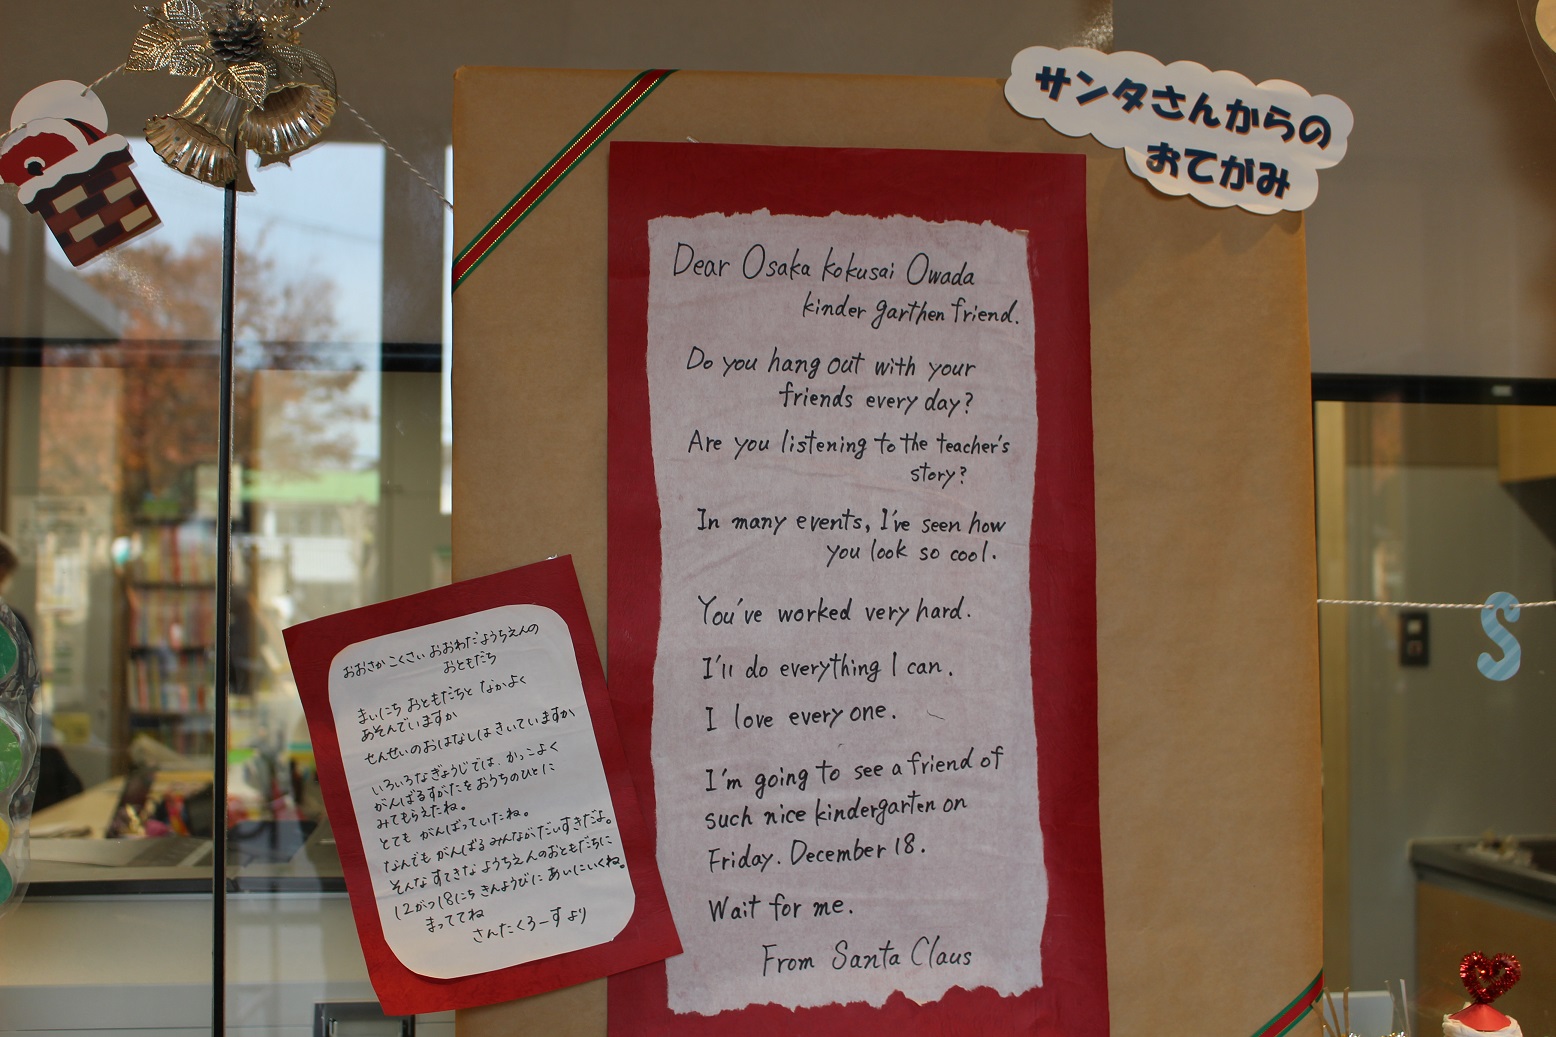 サンタさんからの
おてがみ
Dear Osaka kokusai Owada
kinder garthen friend.
Do you hang out with your
friends every day?
Are you listening to the teacher's
story?
In many events, I've seen how
you look so cool.
You've worked very hard.
I'll do everything I can.
I love every one.
I'm going to see a friend of
such nice kindergarten on
Friday. December 18.
Wait for me.
From Santa Claus
おおさか こくさい おおわだ ようちえんの
おともだち
まいにち おともだちと なかよく
あそんでいますか
せんせいのおはなしは きいていますか
いろいろなぎょうじでは、かっこよく
がんばるすがたを おうちのひとに
みてもらえたね。
とても がんばっていたね。
なんでも がんばる みんながだいすきだよ。
そんな すてきな ようちえんのおともだちに
12がつ18にち きんようびに あいにいくね。
まっててね
さんたくろーすより
S